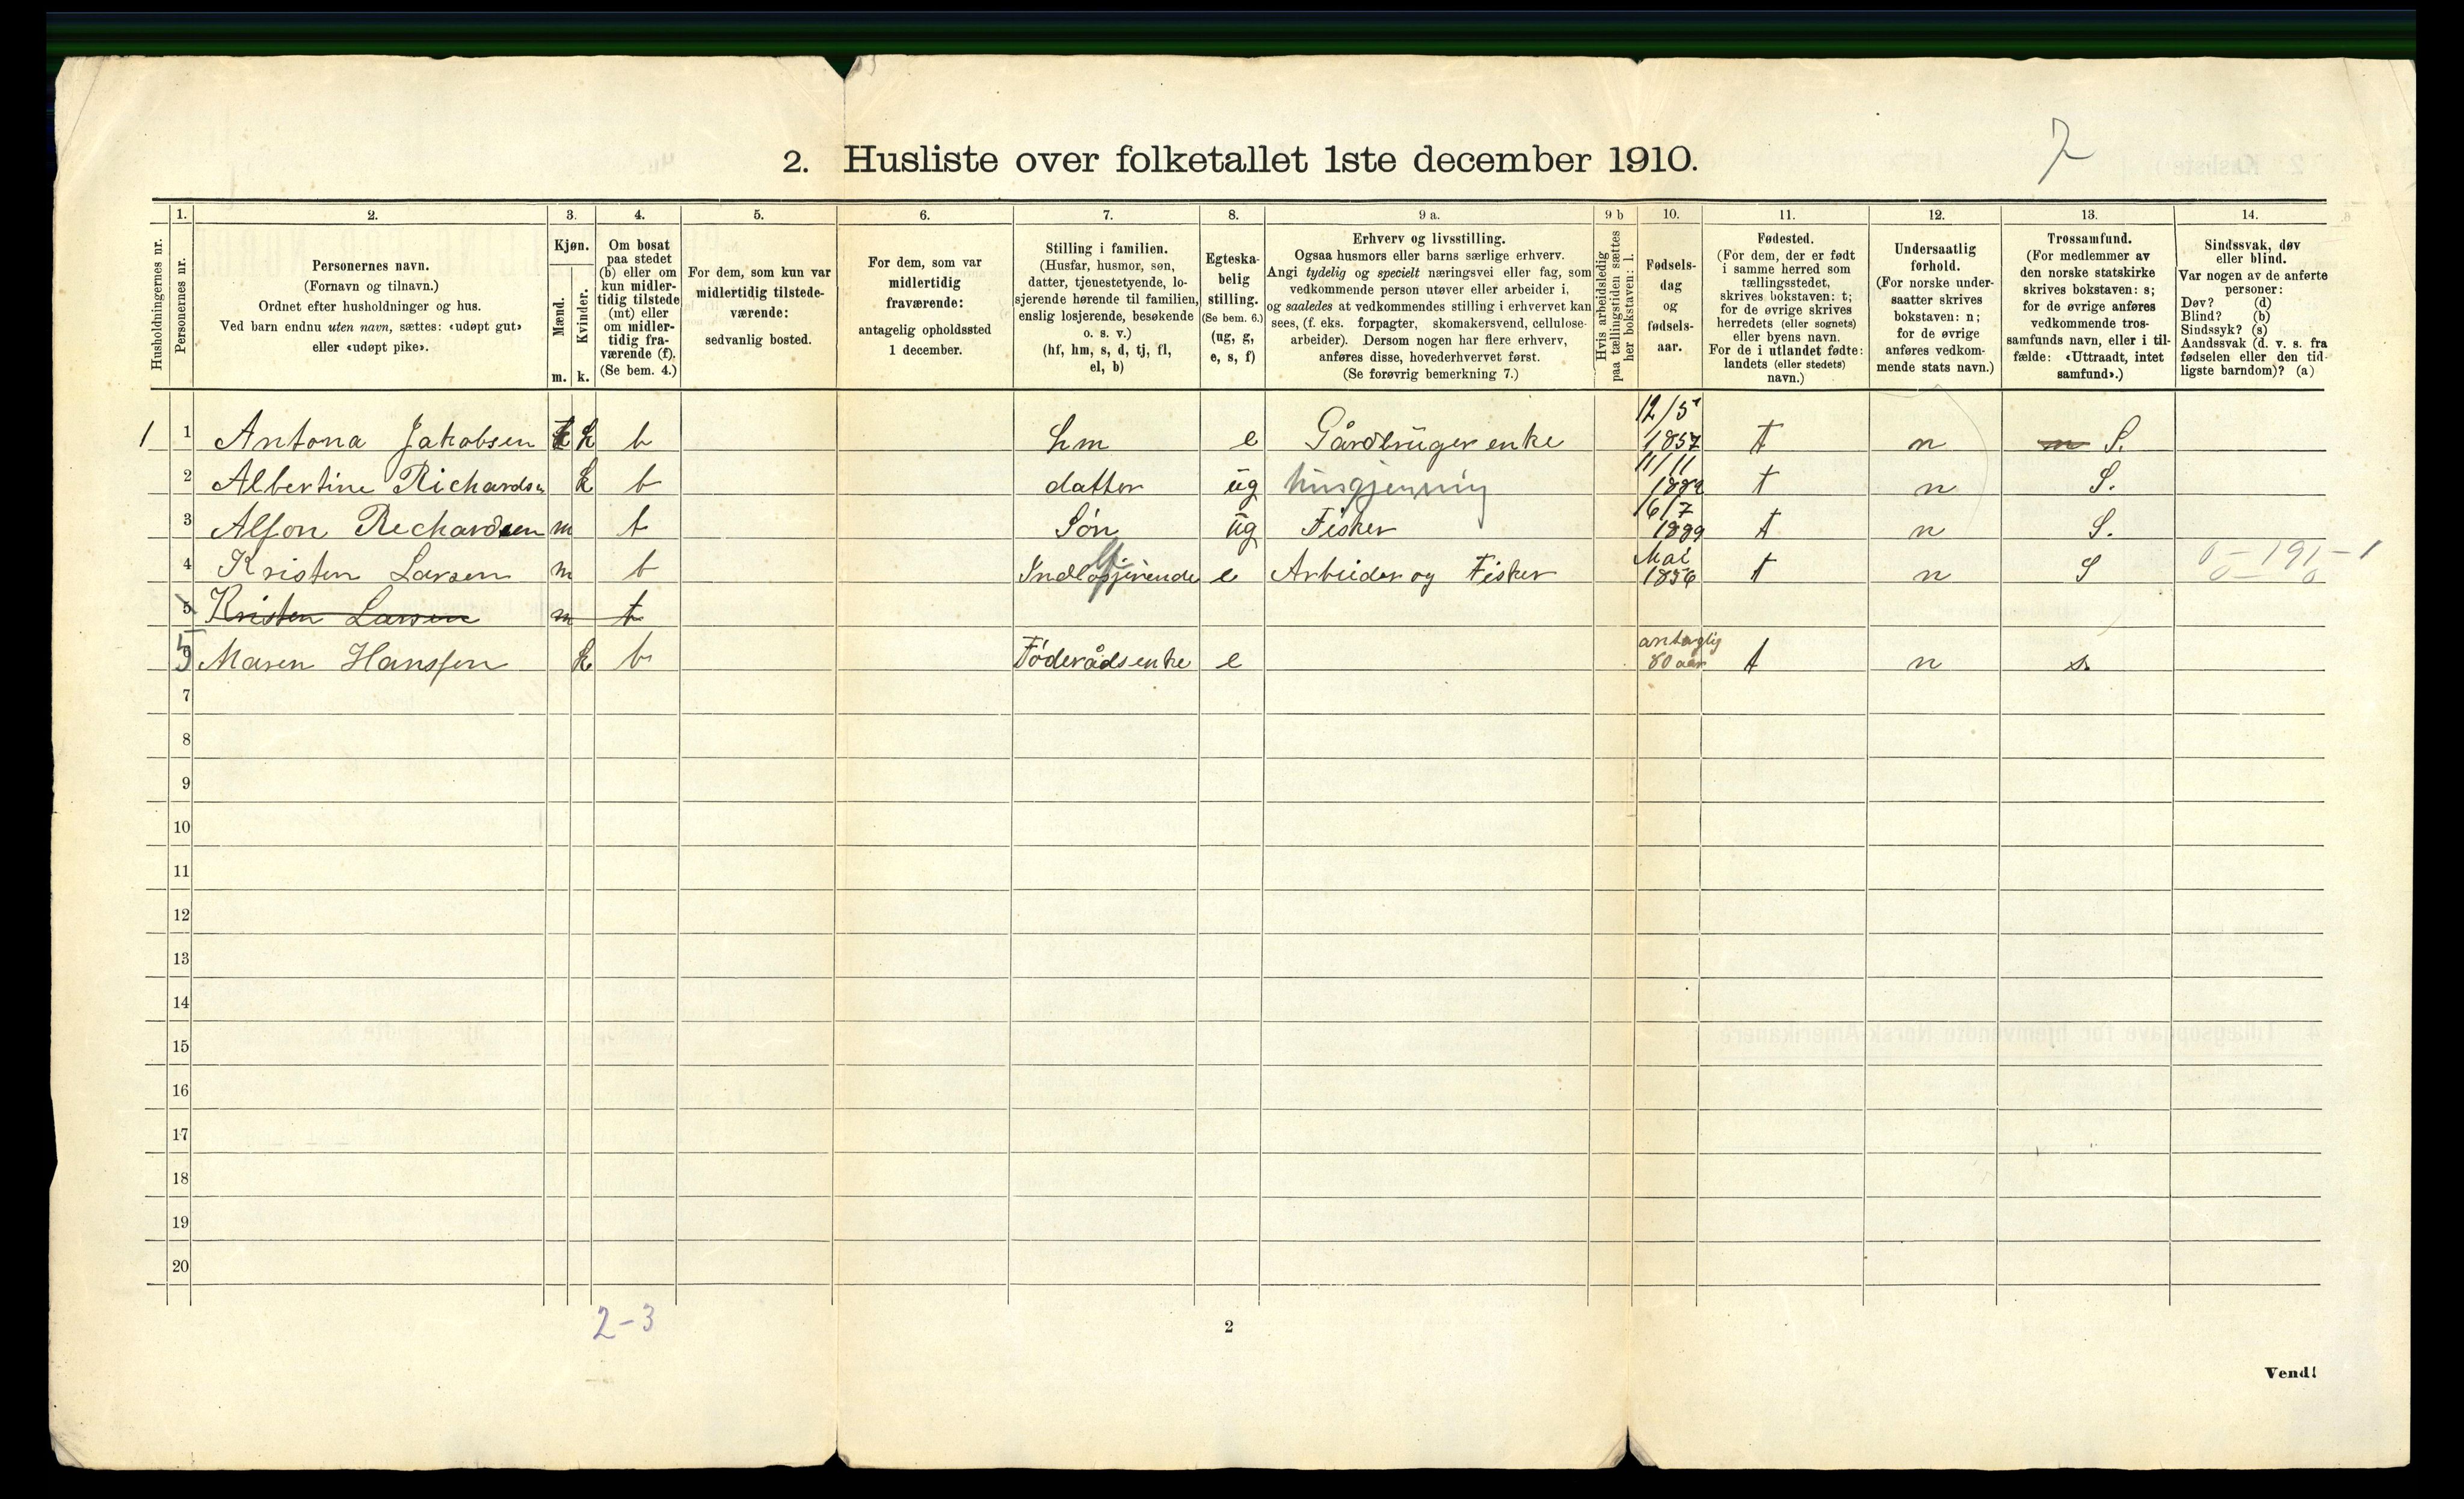 2
2. Husliste over folketallet 1ste december 1910.
Husholdningernes nr.
1.
Personernes nr.
2.
Personernes navn.
(Fornavn og tilnavn.)
Ordnet efter husholdninger og hus.
Ved barn endnu uten navn, sættes: «udøpt gut»
eller «udøpt pike».
3.
Kjøn.
Mænd.
Kvinder.
m. k.
4.
Om bosat
paa stedet
(b) eller om
kun midler-
tidig tilstede
(mt) eller
om midler-
tidig fra-
værende (f).
(Se bem. 4.)
5.
For dem, som kun var
midlertidig tilstede-
værende:
sedvanlig bosted.
6.
For dem, som var
midlertidig
fraværende:
antagelig opholdssted
1 december.
7.
Stilling i familien.
(Husfar, husmor, søn,
datter, tjenestetyende, lo-
sjerende hørende til familien,
enslig losjerende, besøkende
o. s. v.)
(hf, hm, s, d, tj, fl,
el, b)
8.
Egteska-
belig
stilling.
(Se bem. 6.)
(ug, g,
e, s, f)
9 a.
Erhverv og livsstilling.
Ogsaa husmors eller barns særlige erhverv.
Angi tydelig og specielt næringsvei eller fag, som
vedkommende person utøver eller arbeider i,
og saaledes at vedkommendes stilling i erhvervet kan
sees, (f. eks. forpagter, skomakersvend, cellulose-
arbeider). Dersom nogen har flere erhverv,
anføres disse, hovederhvervet først.
(Se forøvrig bemerkning 7.)
9 b
Hvis arbeidsledig
paa tællingstiden sættes
her bokstaven: l.
10.
Fødsels-
dag
og
fødsels-
aar.
11.
Fødested.
(For dem, der er født
i samme herred som
tællingsstedet,
skrives bokstaven: t;
for de øvrige skrives
herredets (eller sognets)
eller byens navn.
For de i utlandet fødte:
landets (eller stedets)
navn.)
12.
Undersaatlig
forhold.
(For norske under-
saatter skrives
bokstaven: n;
for de øvrige
anføres vedkom-
mende stats navn.)
13.
Trossamfund.
(For medlemmer av
den norske statskirke
skrives bokstaven: s;
for de øvrige anføres
vedkommende tros-
samfunds navn, eller i til-
fælde: «Uttraadt, intet
samfund».)
14.
Sindssvak, døv
eller blind.
Var nogen av de anførte
personer:
Døv? (d)
Blind? (b)
Sindssyk? (s)
Aandssvak (d. v. s. fra
fødselen eller den tid-
ligste barndom)? (a)
1 1 Antona Jakobsen k k b hm e Gårdbruger enke 12/5 1857 t n n S.
2 Albertine Richardsn k b datter ug husgjerning 11/11 t n S.
3 Alfon Rechardsen m b Søn ug Fisker 16/7 1889 t n S.
4 Kristen Larsen m b Indlosjerende e Arbeider og Fisker Mai 1856 t n S 0-191-1
5 Kristen Larsen m t
5 Maren Hanssen k b Føderådsenke e antaglig 80 aar t n s.
7
8
9
10
11
12
13
14
15
16
17
18
19
20
2-3
2
Vend!